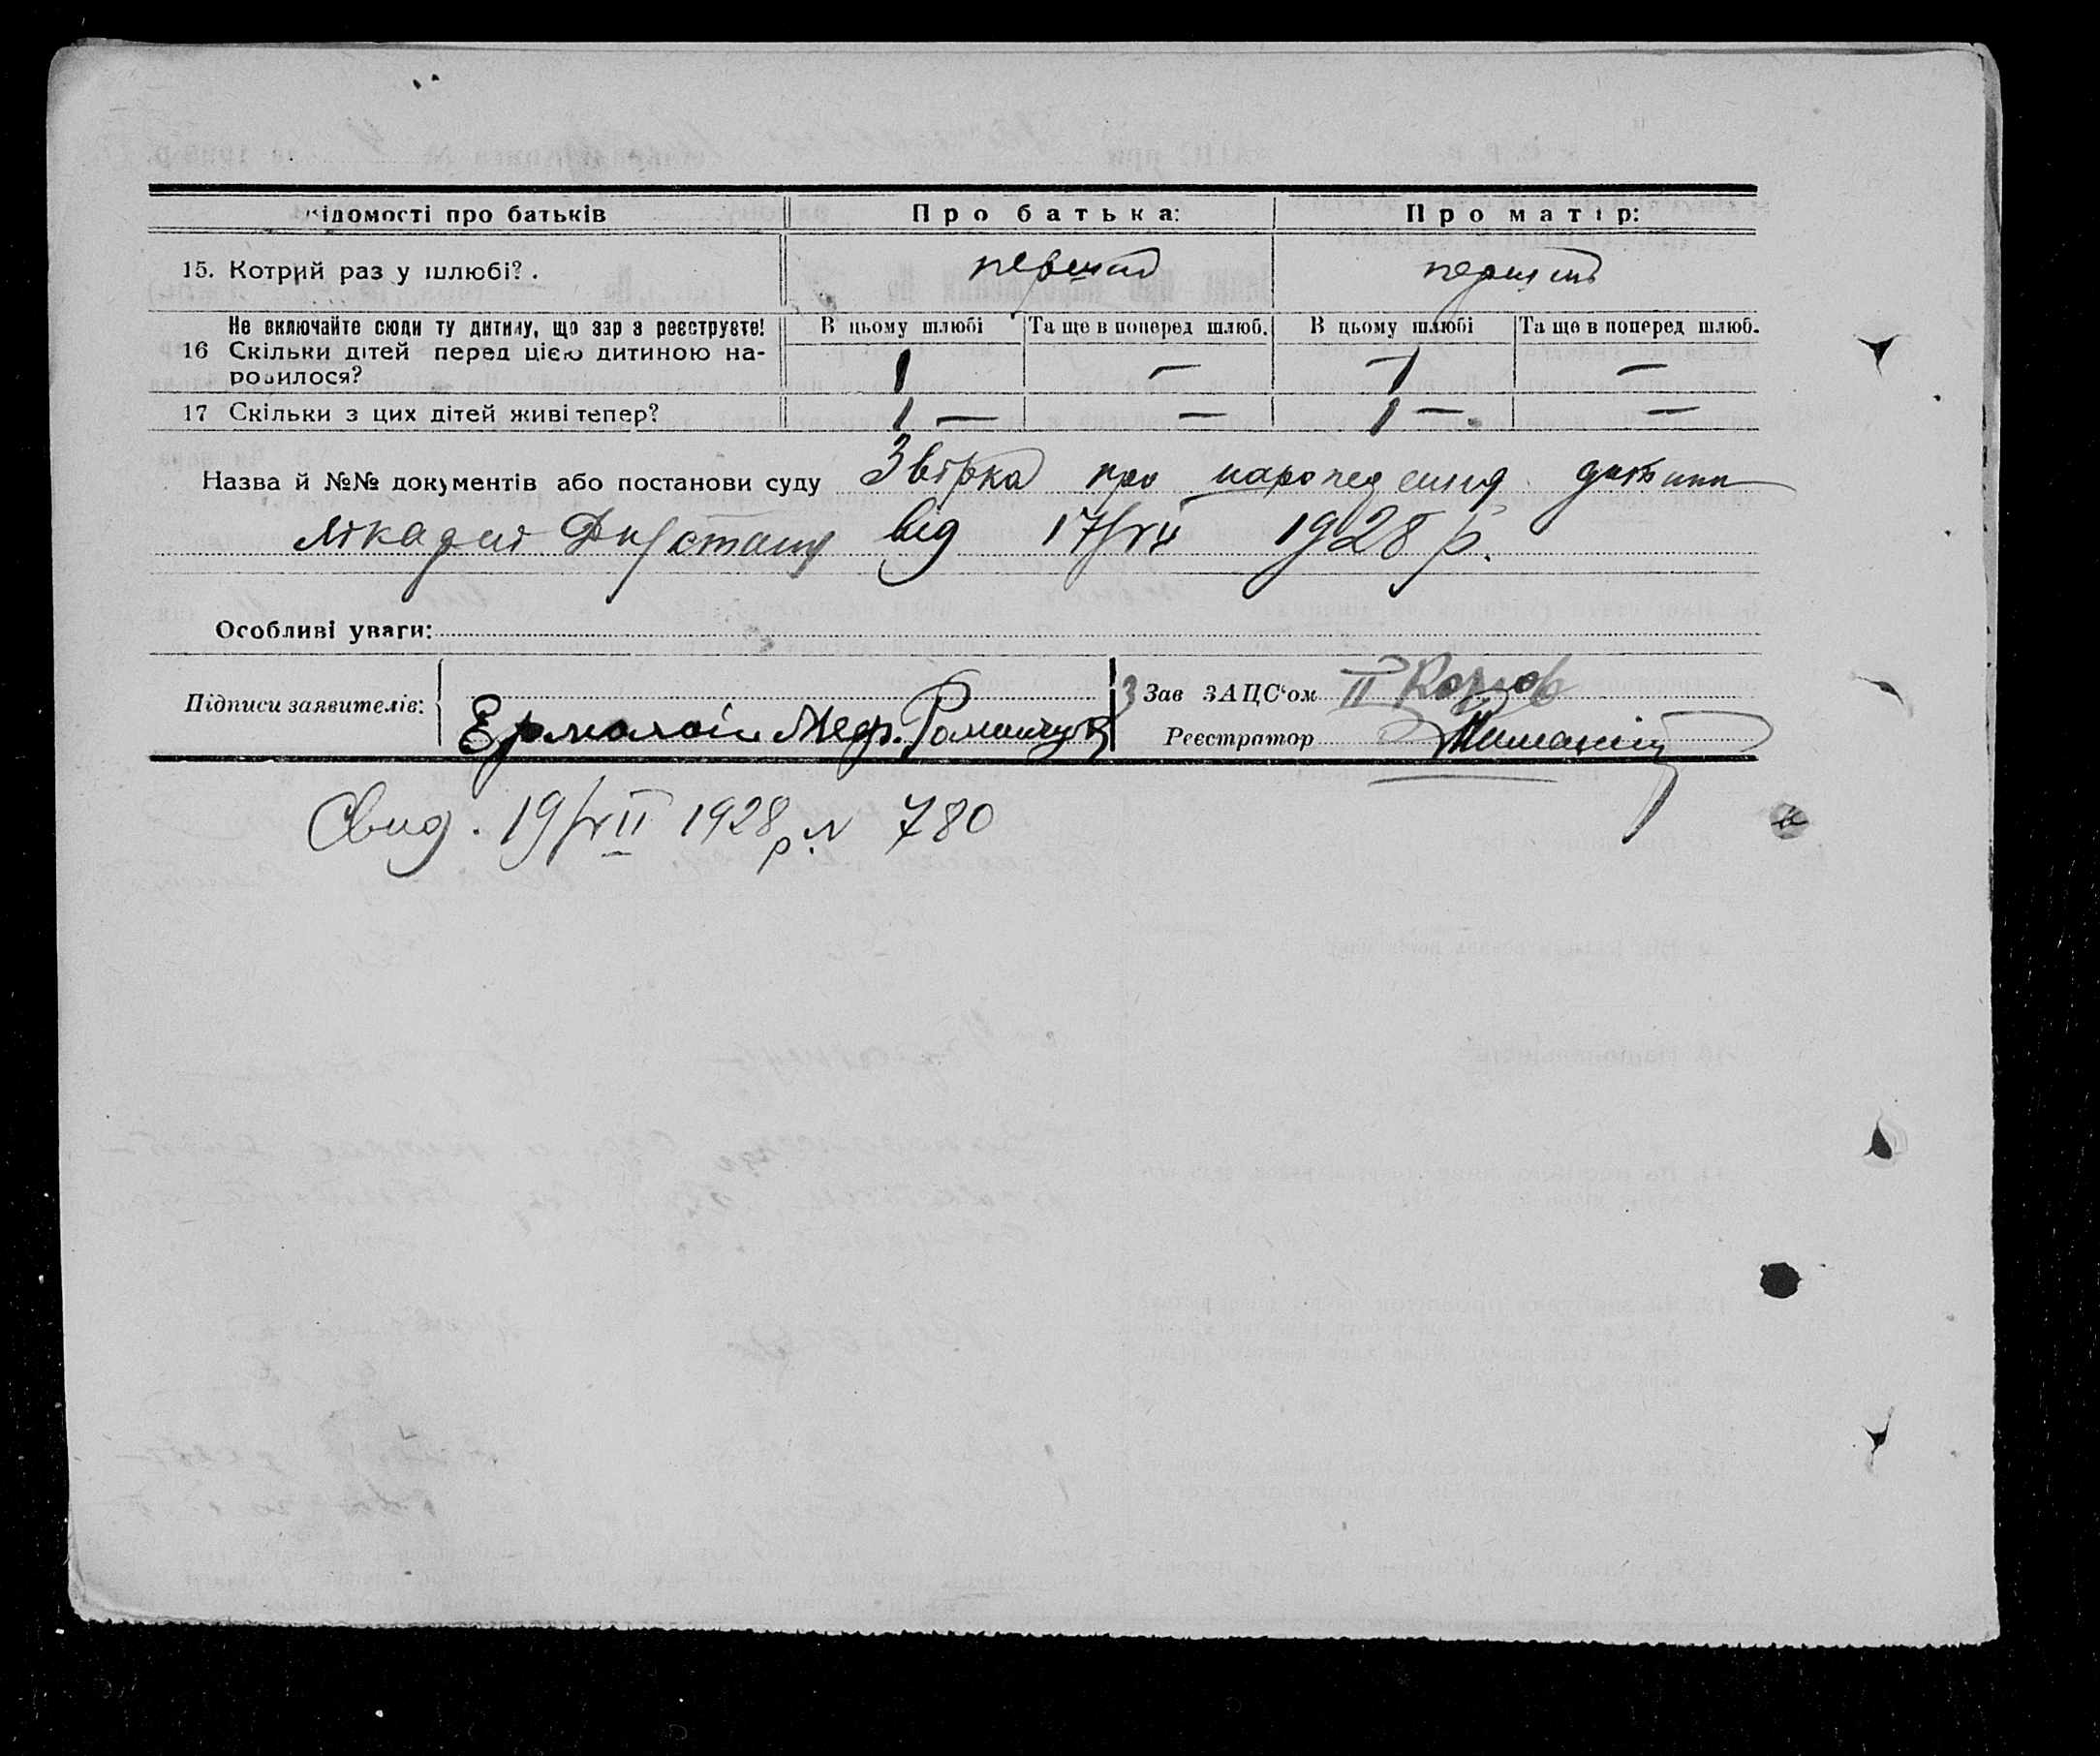 відомості про батьків Про батька: Про матір:
15. Котрий раз у шлюбі?. перший перший
Не включайте сюди ту дитину, що зараз реєструєте! В цьому шлюбі Та ще в поперед шлюб. В цьому шлюбі Та ще в поперед шлюб.
16 Скільки дітей перед цією дитиною на- 1 — 1 —
родилося?
17 Скільки з цих дітей живі тепер? 1 — — 1 — —
Назва й №№ документів або постанови суду про дитини
від 17/VII 1928 р.
Особливі уваги:
Підписи заявителів: Зав ЗАЦС'ом
Реєстратор
Свид. 19/VII 1928 р. N 780